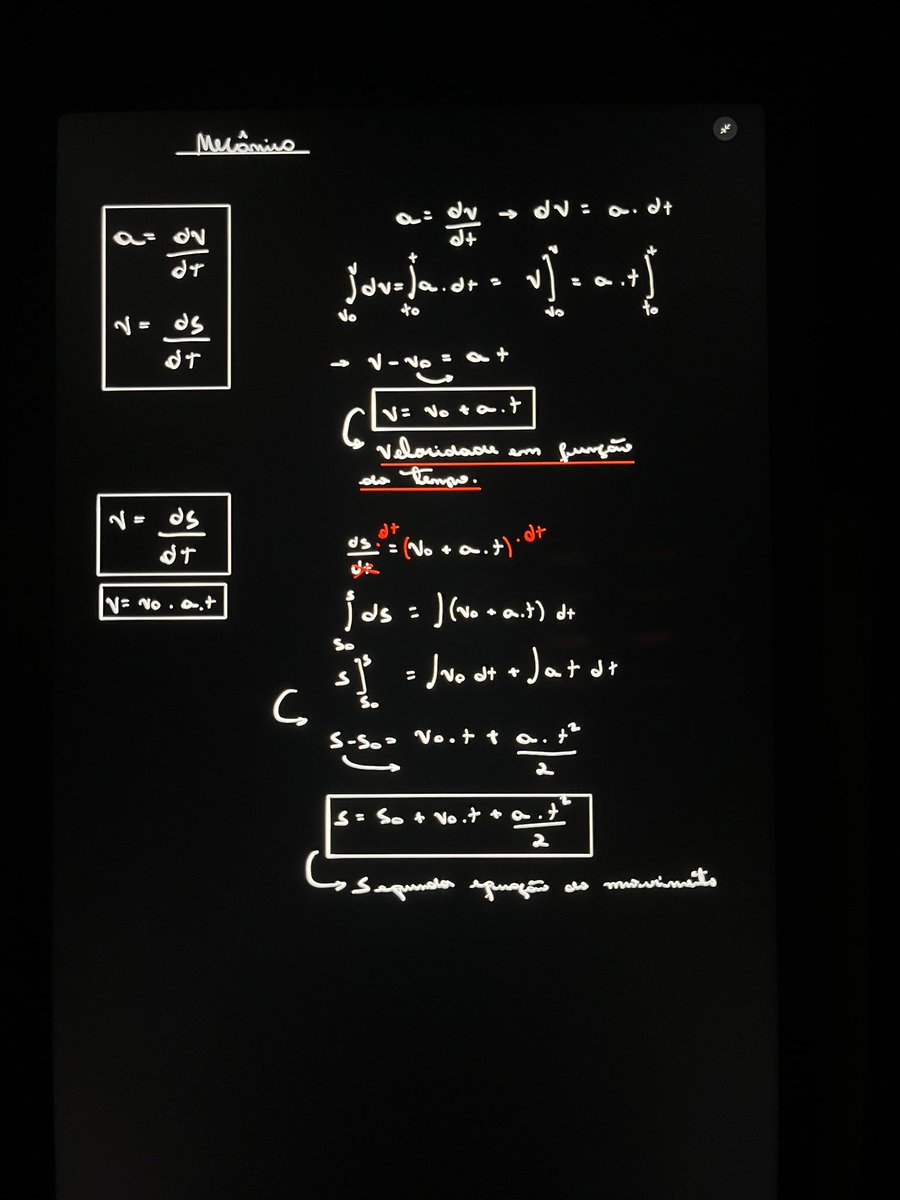 Mecânica
a = dv/dt
v = ds/dt
a = dv/dt → dv = a . dt
∫_{v0}^{v} dv = ∫_{t0}^{t} a . dt = v]_{v0}^{v} = a . t]_{t0}^{t}
→ v - v0 = a t
v = v0 + a . t
Velocidade em função
do tempo.
v = ds/dt
v = v0 . a . t
ds/dt . dt = (v0 + a . t) . dt
∫_{s0}^{s} ds = ∫(v0 + a.t) dt
s]_{s0}^{s} = ∫v0 dt + ∫a t dt
s - s0 = v0 . t + a . t²/2
s = s0 + v0 . t + a . t²/2
Segunda equação do movimento